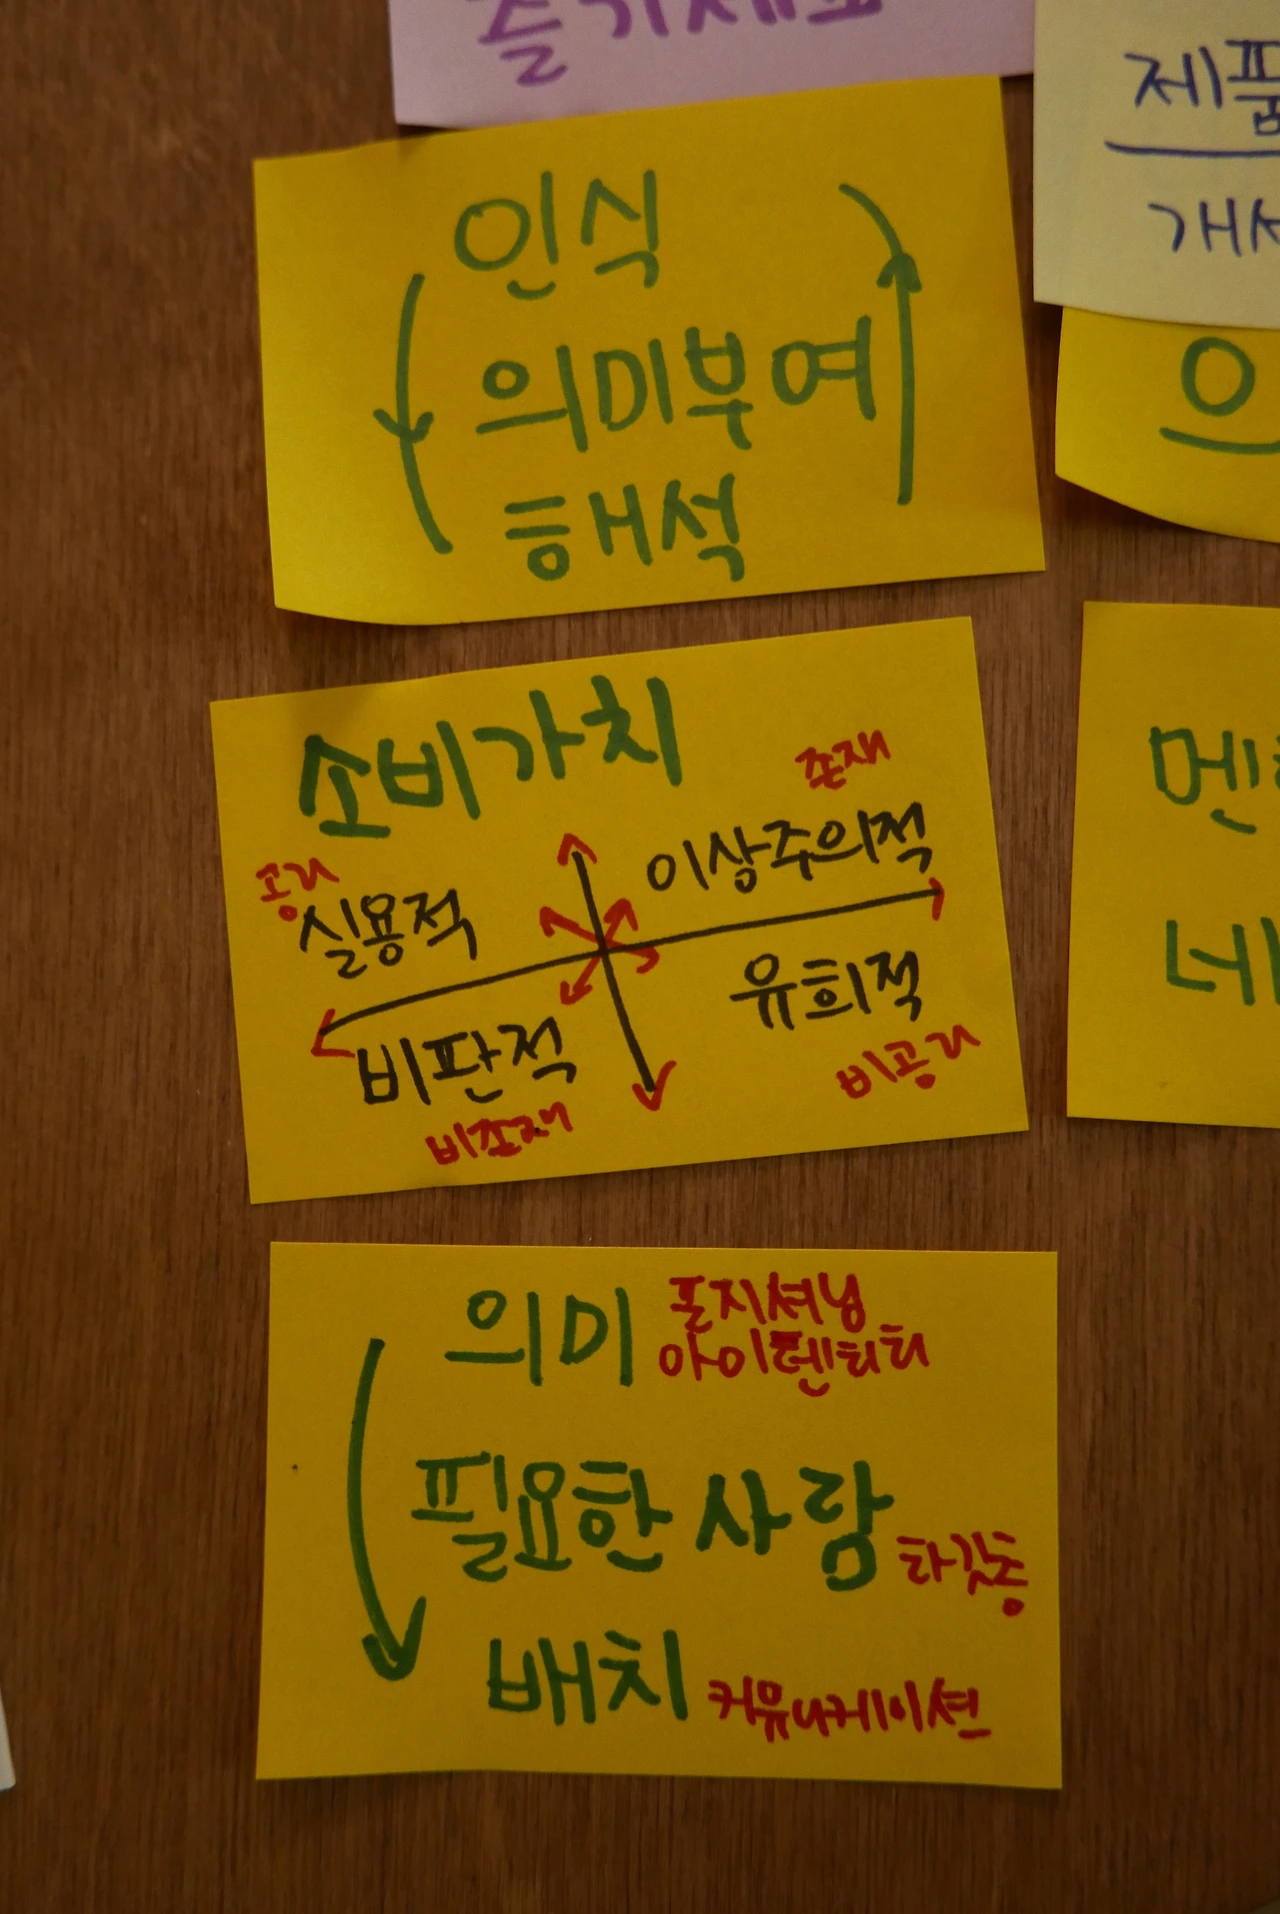 제품
인식
의미부여
해석
소비가치
존재
이상주의적
공리
실용적
유희적
비공리
비판적
비존재
의미 포지셔닝
아이덴티티
필요한 사람
타깃층
배치 커뮤니케이션